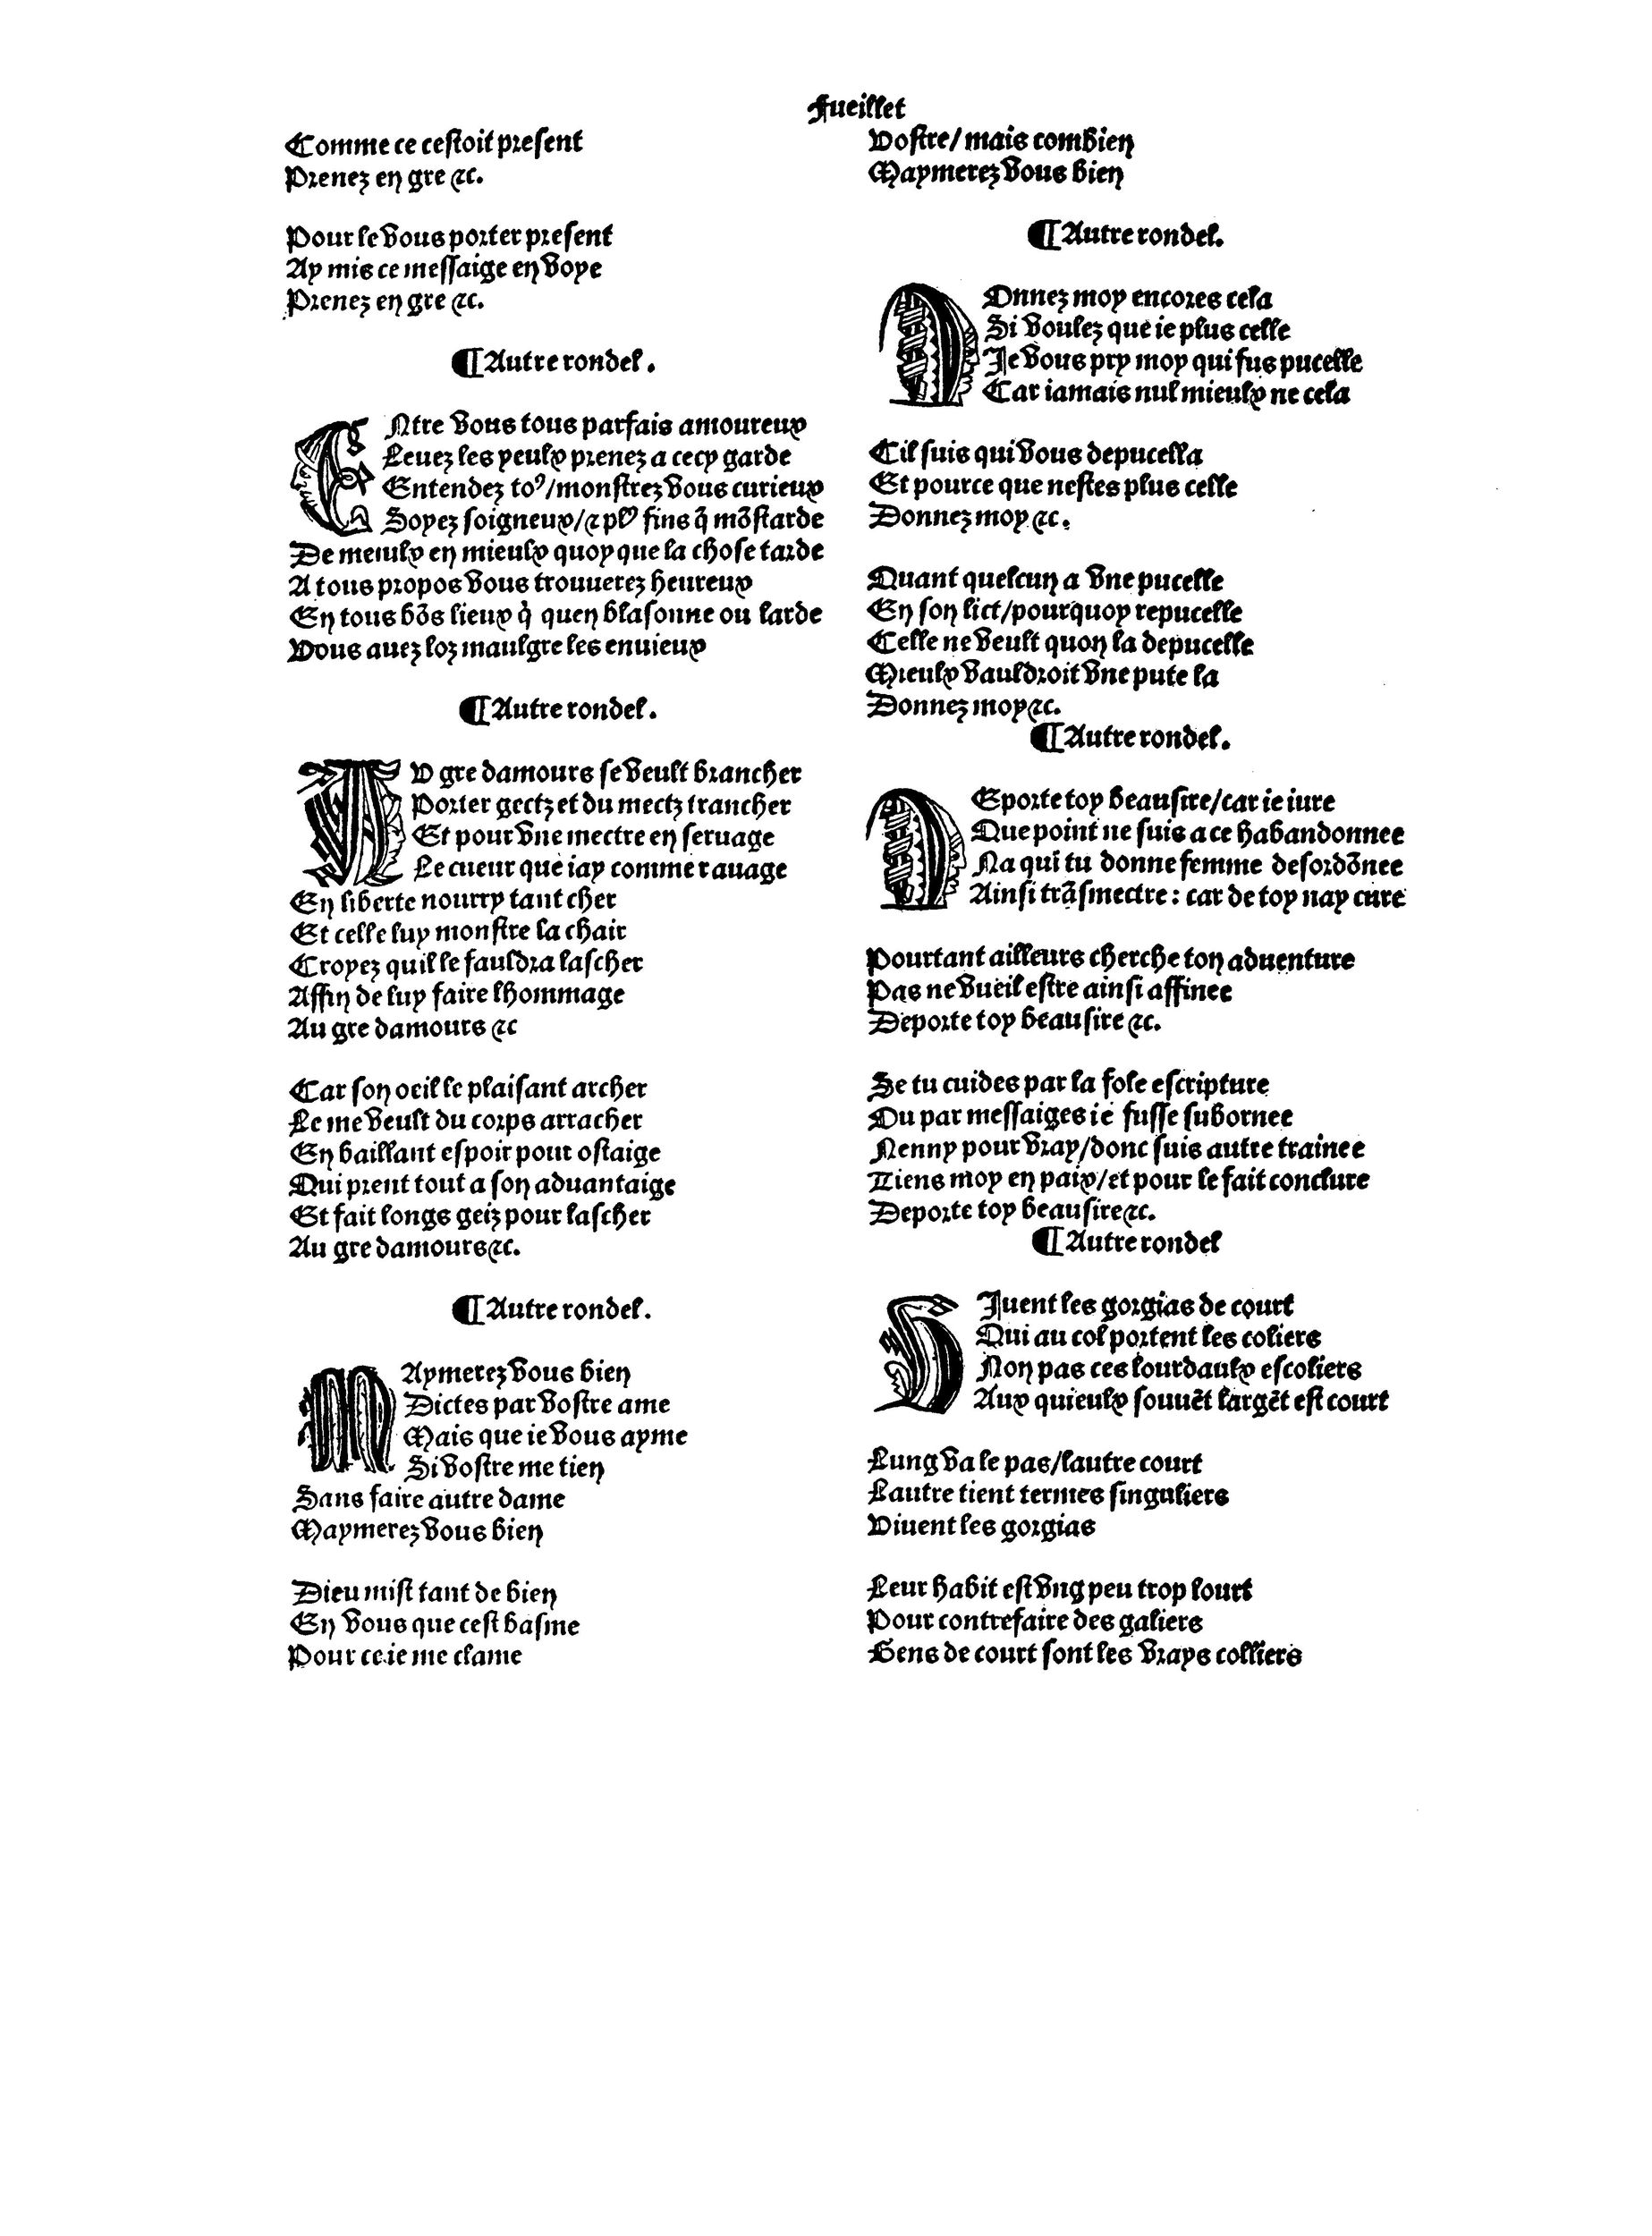 Fueillet
Comme ce cestoit present
Prenez en gre &c.
Pour le vous porter present
Ay mis ce messaige en voye
Prenez en gre &c.
¶ Autre rondel.
ENtre vous tous parfais amoureux
Leuez les yeulx prenez a cecy garde
Entendez toꝰ/monstrez vous curieux
Soyez soigneux/& plꝰ fins q̃ mõstarde
De meiulx en mieulx quoy que la chose tarde
A tous propos vous trouuerez heureux
En tous bõs lieux q̇ quen blasonne ou larde
Vous auez loz maulgre les enuieux
¶ Autre rondel.
AV gre damours se veult brancher
Porter gectz et du mectz trancher
Et pour vne mectre en seruage
Le cueur que iay comme rauage
En liberte nourry tant cher
Et celle luy monstre la chair
Croyez quil le fauldra lascher
Affin de luy faire lhommage
Au gre damours &c
Car son oeil le plaisant archer
Le me veult du corps arracher
En baillant espoir pour ostaige
Qui prent tout a son aduantaige
Et fait longs geiz pour lascher
Au gre damours &c.
¶ Autre rondel.
MAymerez vous bien
Dictes par vostre ame
Mais que ie vous ayme
Si vostre me tien
Sans faire autre dame
Maymerez vous bien
Dieu mist tant de bien
En vous que cest basme
Pour ce ie me clame
Vostre/mais combien
Maymerez vous bien
¶ Autre rondel.
DOnnez moy encores cela
Si voulez que ie plus celle
Je vous pry moy qui fus pucelle
Car iamais nul mieulx ne cela
Cil suis qui vous depucella
Et pource que nestes plus celle
Donnez moy &c.
Quant quelcun a vne pucelle
En son lict/pourquoy repucelle
Celle ne veult quon la depucelle
Mieulx vauldroit vne pute la
Donnez moy &c.
¶ Autre rondel.
DEporte toy beau sire/car ie iure
Que point ne suis a ce habandonnee
Na qui tu donne femme desordõnee
Ainsi trãsmectre : car de toy nay cure
Pourtant ailleurs cherche ton aduenture
Pas ne vueil estre ainsi affinee
Deporte toy beau sire &c.
Se tu cuides par la fole escripture
Ou par messaiges ie fusse subornee
Nenny pour vray/donc suis autre trainee
Tiens moy en paix/et pour le fait conclure
Deporte toy beau sire &c.
¶ Autre rondel
UJuent les gorgias de court
Qui au col portent les coliers
Non pas ces lourdaulx escoliers
Aux quieulx souuẽt largẽt est court
Lung va le pas/lautre court
Lautre tient termes singuliers
Viuent les gorgias
Leur habit est vng peu trop lourt
Pour contrefaire des galiers
Gens de court sont les vrays colliers